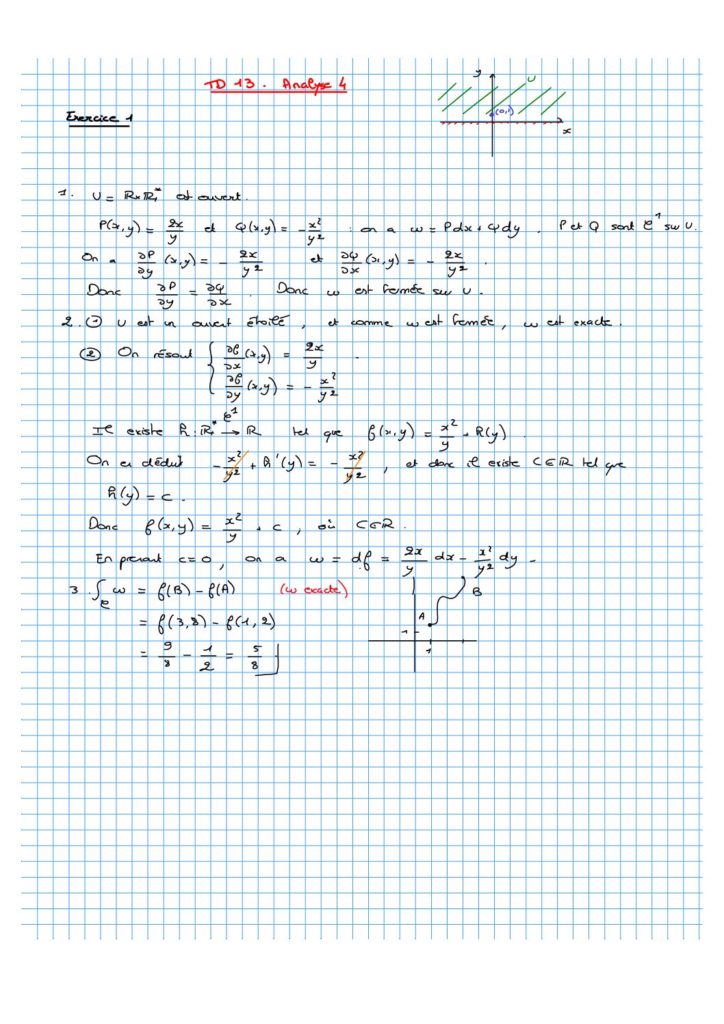 TD 13. Analyse 4
y
U
(0,1)
x
Exercice 1
1. U = ℝ×ℝ₊* est ouvert.
P(x,y) = 2x/y et Q(x,y) = -x²/y² : on a ω = Pdx + Qdy. P et Q sont C¹ sur U.
On a ∂P/∂y (x,y) = - 2x/y² et ∂Q/∂x (x,y) = - 2x/y².
Donc ∂P/∂y = ∂Q/∂x. Donc ω est fermée sur U.
2. ① U est un ouvert étoilé, et comme ω est fermée, ω est exacte.
② On résout { ∂f/∂x (x,y) = 2x/y
∂f/∂y (x,y) = - x²/y²
Il existe h : ℝ₊* → ℝ C¹ tel que f(x,y) = x²/y + h(y).
On en déduit - x²/y² + h'(y) = - x²/y², et donc il existe C∈ℝ tel que
h(y) = c.
Donc f(x,y) = x²/y + c, où C∈ℝ.
En prenant c=0, on a ω = df = 2x/y dx - x²/y² dy.
3. ∫_C ω = f(B) - f(A) (ω exacte)
= f(3,8) - f(1,2)
= 9/8 - 1/2 = 5/8
A
B
1
1